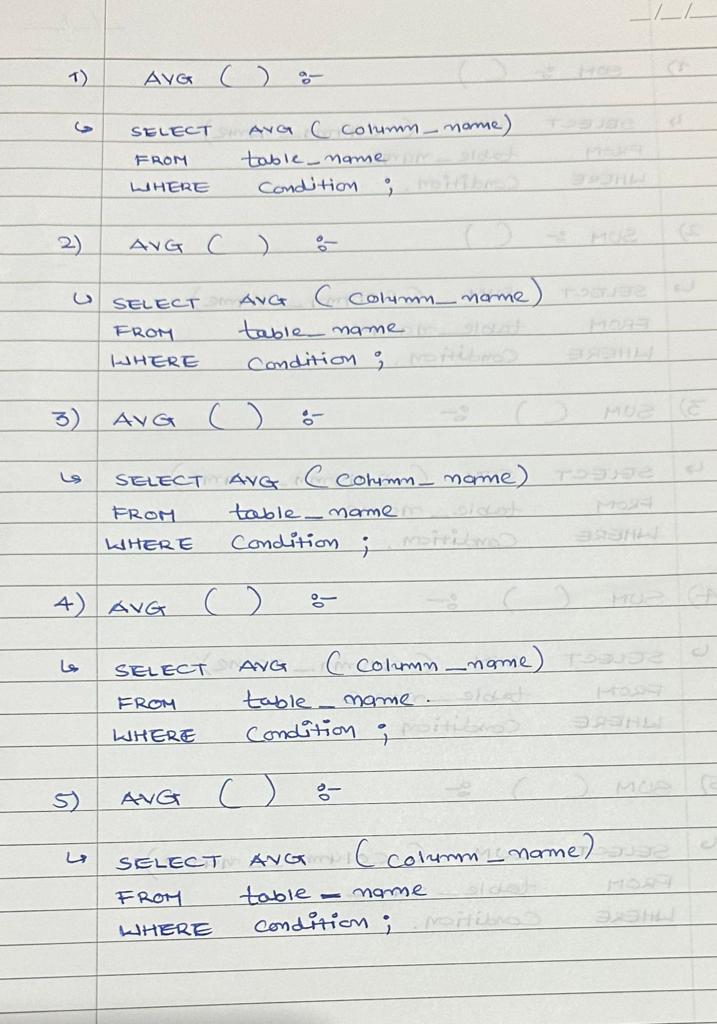 _/_/_
1) AVG ( ) :-
↳ SELECT AVG ( column_name)
FROM table_name
WHERE Condition ;
2) AVG ( ) :-
↳ SELECT AVG ( column_name)
FROM table_name
WHERE Condition ;
3) AVG ( ) :-
↳ SELECT AVG ( column_name)
FROM table_name
WHERE Condition ;
4) AVG ( ) :-
↳ SELECT AVG ( column_name)
FROM table_name.
WHERE Condition ;
5) AVG ( ) :-
↳ SELECT AVG ( column_name)
FROM table_name
WHERE Condition ;